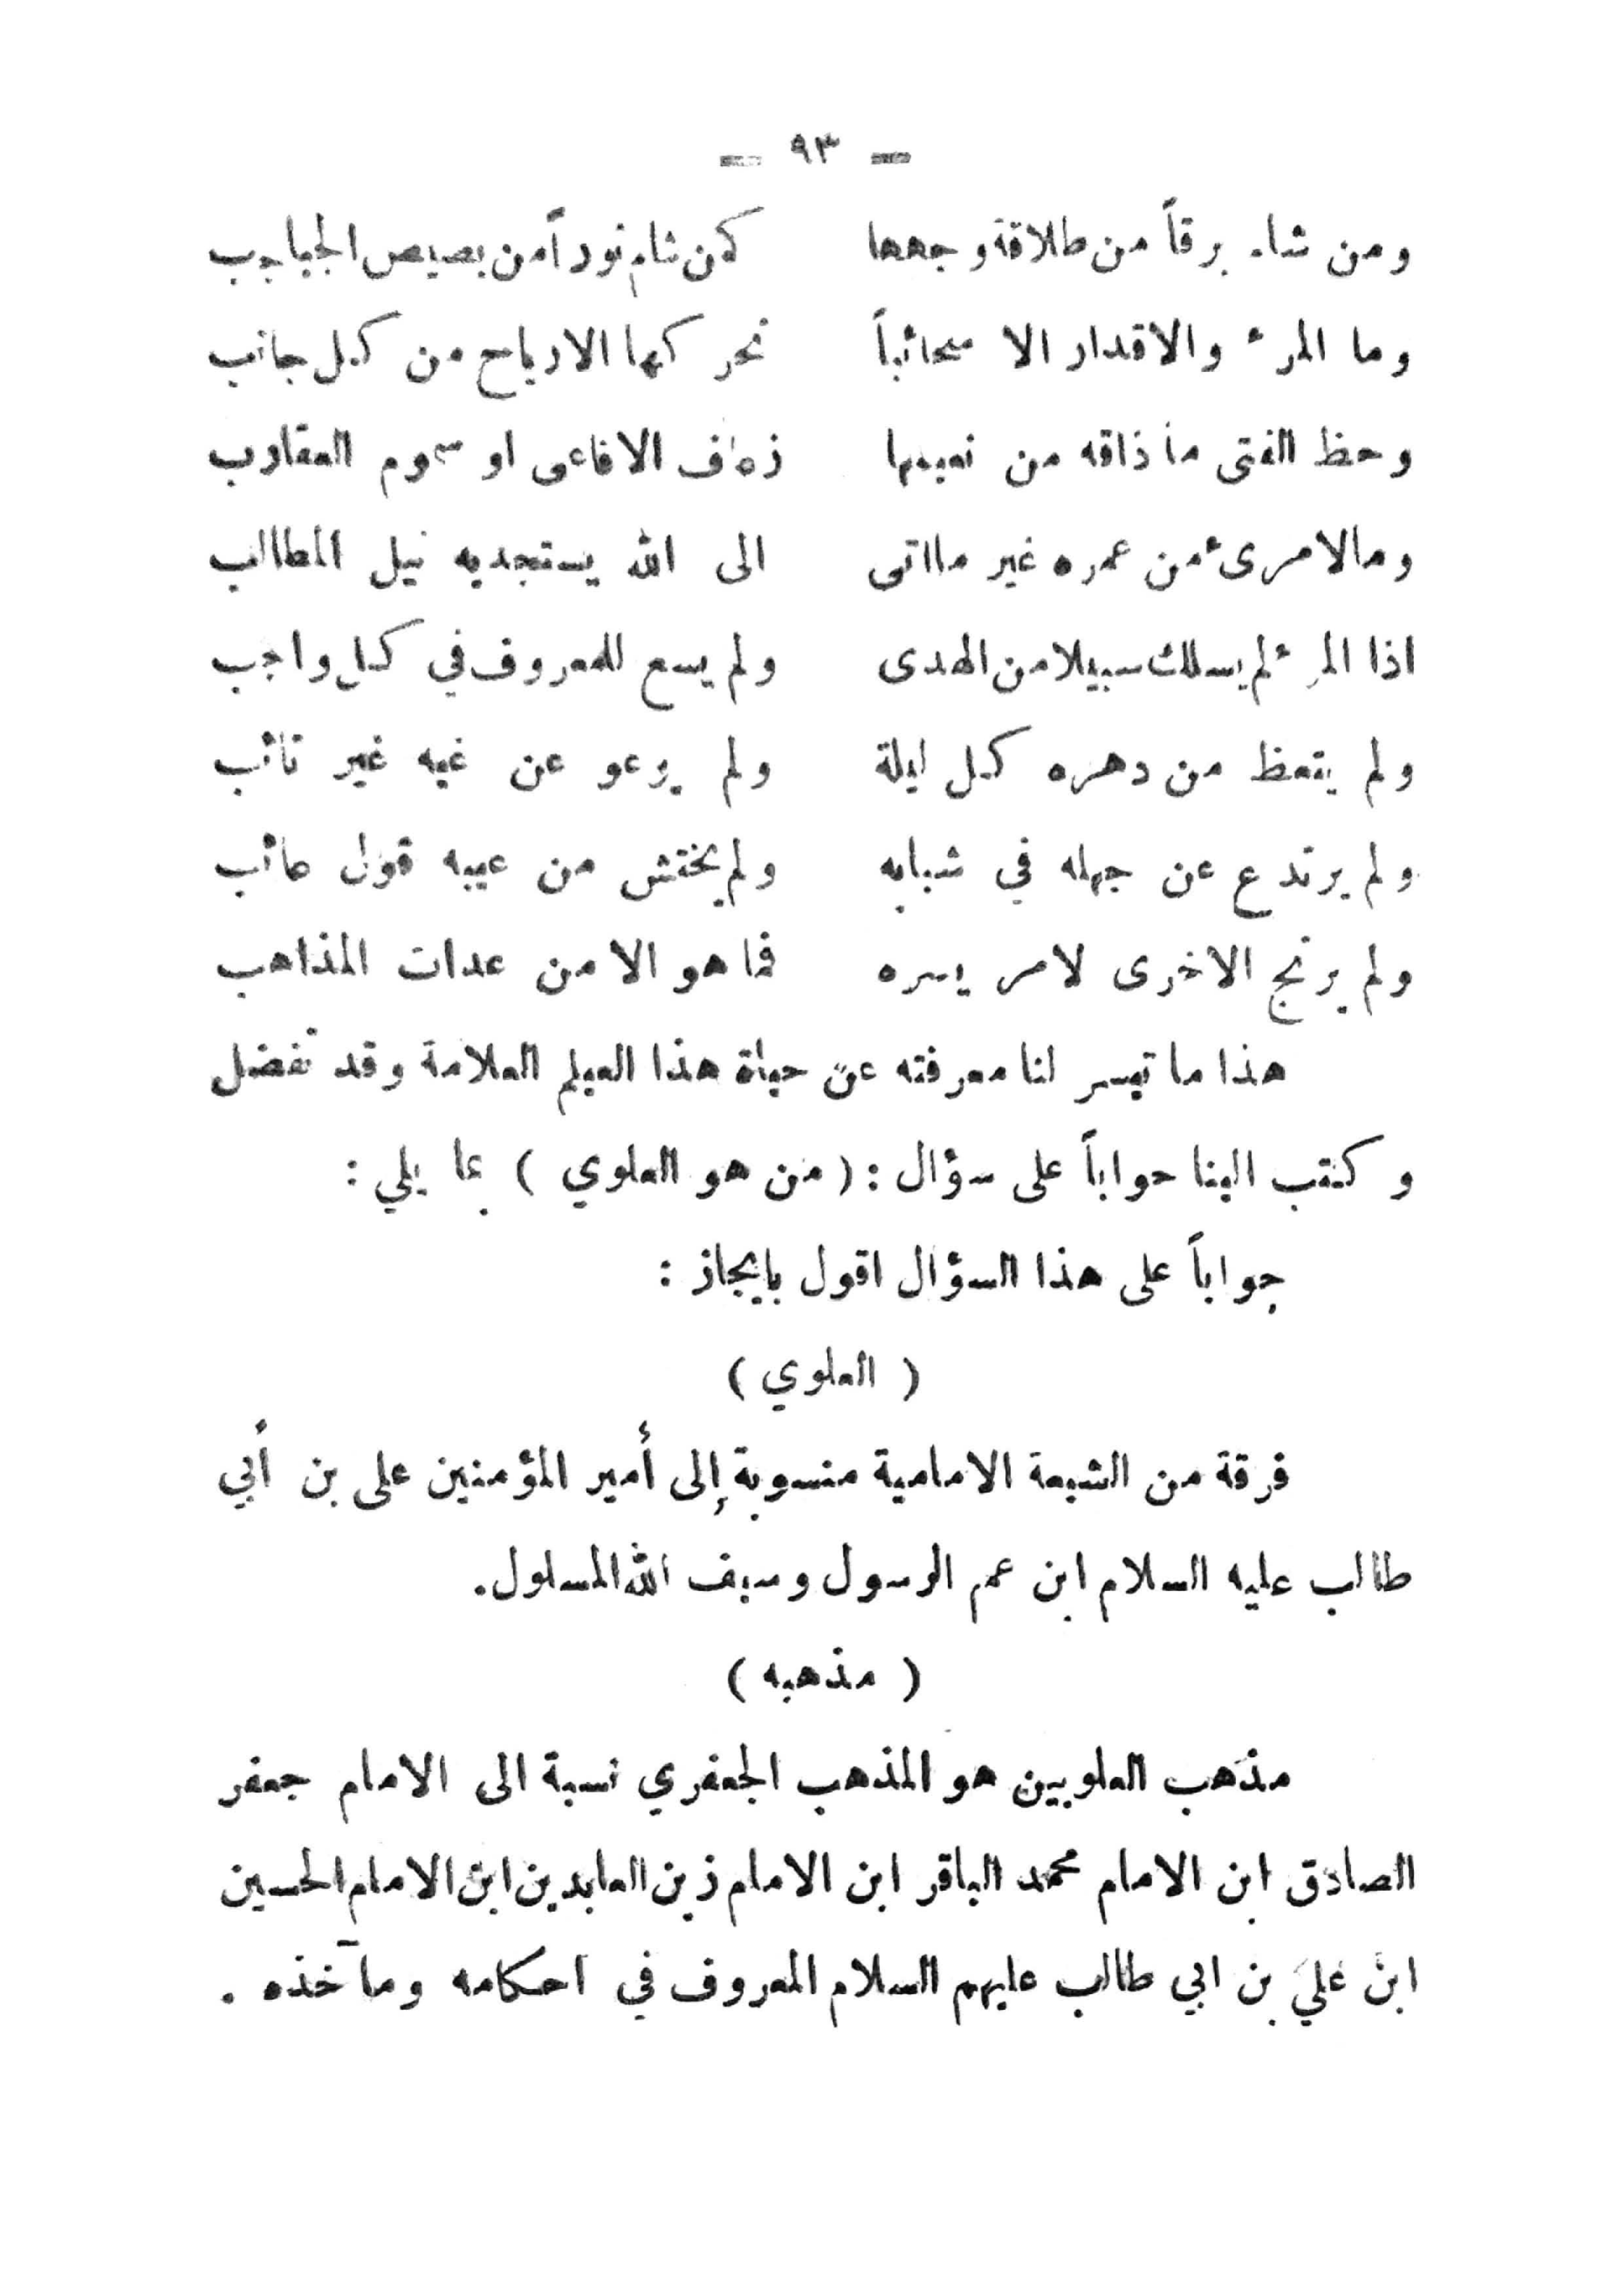 — ٩٣ —
ومن شاء برقاً من طلاقة وجهها كمن شام نوراً من بصيص الحباحب
وما المرء والاقدار الا سحائباً تحركها الارياح من كل جانب
وحظ الفتى ما ذاقه من نعيمها زعاف الافاعى او سموم العقارب
وما لامرىء من عمره غير ما اتى الى الله يستجديه نيل المطالب
اذا المرء لم يسلك سبيلا من الهدى ولم يسع للمعروف في كل واجب
ولم يتعظ من دهره كل ليلة ولم يرعو عن غيه غير تائب
ولم يرتدع عن جهله في شبابه ولم يختش من عيبه قول عائب
ولم يرتج الاخرى لامر يسره فما هو الا من عداة المذاهب
هذا ما تيسر لنا معرفته عن حياة هذا العيلم العلامة وقد تفضل
وكتب الينا جواباً على سؤال : ( من هو العلوي ) بما يلي :
جواباً على هذا السؤال اقول بايجاز :
( العلوي )
فرقة من الشيعة الامامية منسوبة إلى أمير المؤمنين على بن أبي
طالب عليه السلام ابن عم الرسول وسيف الله المسلول.
( مذهبه )
مذهب العلويين هو المذهب الجعفري نسبة الى الامام جعفر
الصادق ابن الامام محمد الباقر ابن الامام زين العابدين ابن الامام الحسين
ابن علي بن ابي طالب عليهم السلام المعروف في احكامه ومآخذه .